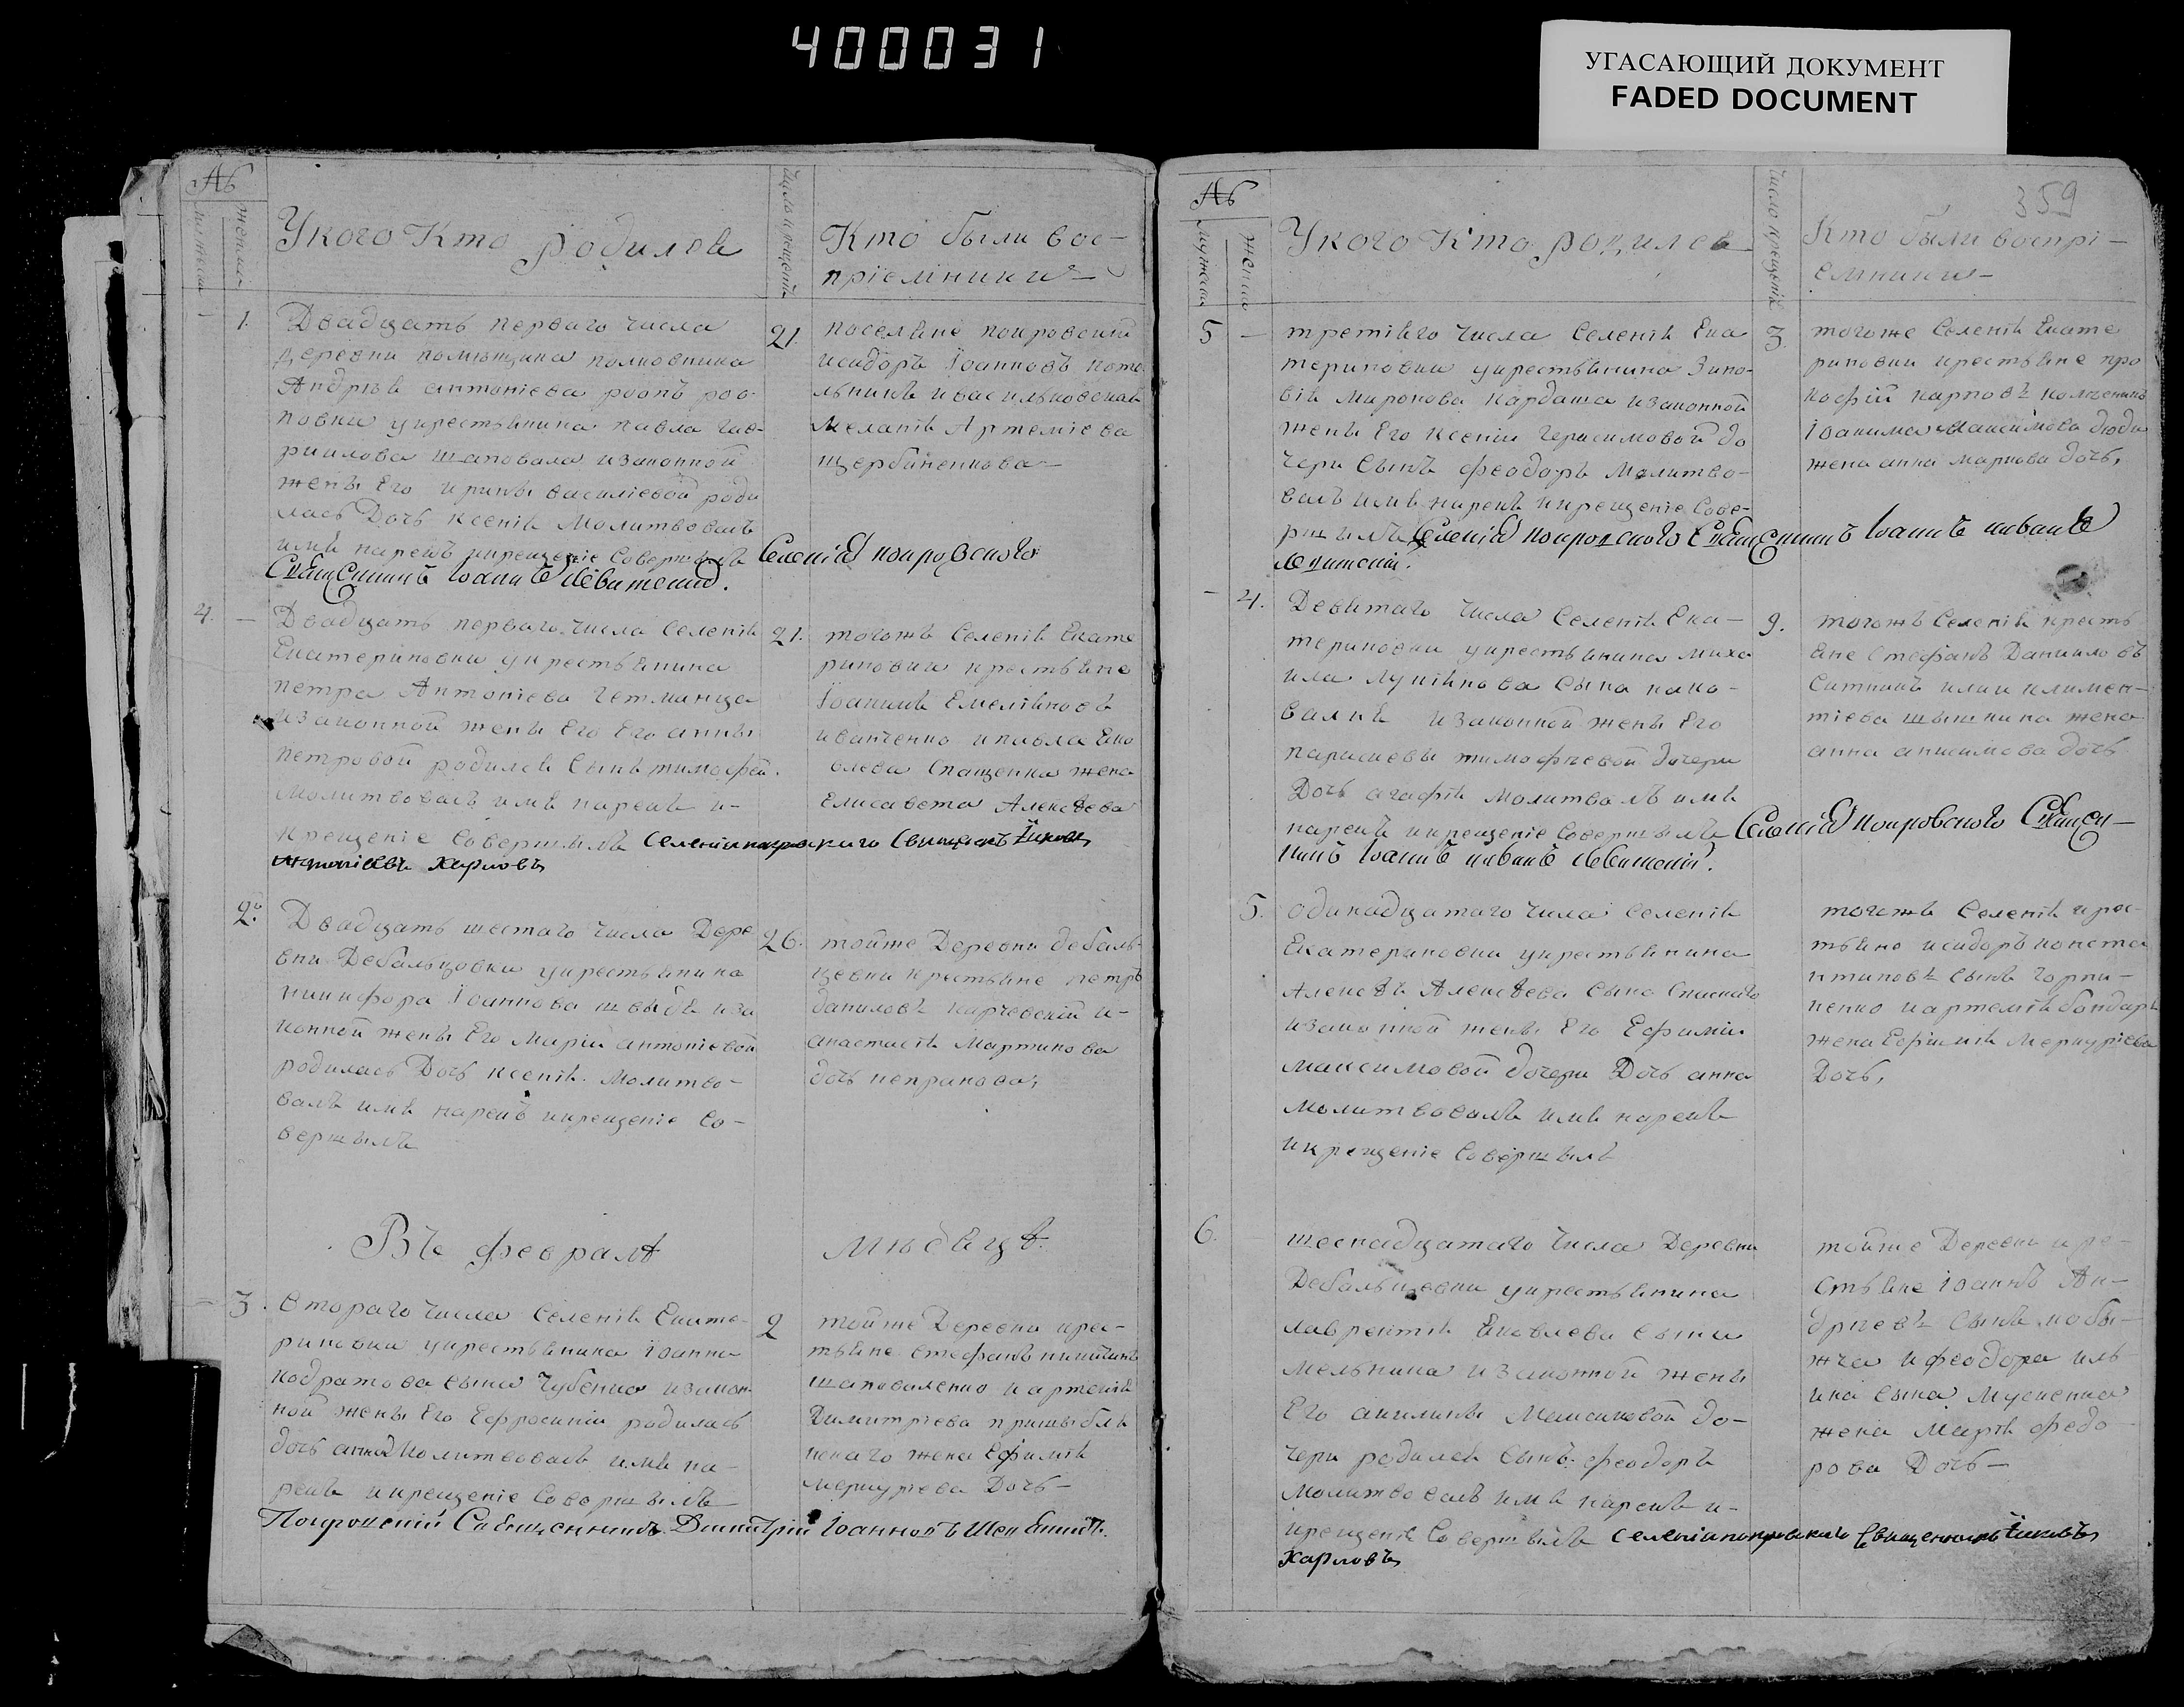 400031
УГАСАЮЩИЙ ДОКУМЕНТ
FADED DOCUMENT
У кого Кто родился
Число крещенія
Кто были вос-
пріемники
1.
Двадцать перваго числа
деревни помѣщика полковника
Андрея антоніева
повки у крестьянина павла гав-
риилова шаповала и законной
жены Его ирины василіевой роди
лась Дочь ксенія Молитвовалъ
имя нарекъ и крещеніе Совершилъ Селенія покровского
Священникъ Іоаннъ Левитскій.
21.
поселяне покровскій
исидоръ Іоанновъ кото
льниковъ и васильковская
Меланія Артеміева
щербиненкова
4.
Двадцать перваго числа Селенія
Екатериновки у крестьянина
петра Антоніева Гетманца
и законной жены Его Его анны
петровой родился Сынъ тимофей.
Молитвовалъ имя нарекъ и-
крещеніе Совершилъ Селенія покровского Священникъ
Антоніевъ Карповъ
21.
тогожъ Селенія Екате
риновки крестьяне
Іоакимъ Емеліяновъ
иванченко и павла Яко
влева Спащенка жена
Елисавета Алексѣева
2.
Двадцать шестаго числа Дере
вни Дебальцовки у крестьянина
никифора Іоаннова швыдя и за
конной жены Его Маріи антоніевой
родилась Дочь ксенія. Молитво-
валъ имя нарекъ и крещеніе Со-
вершилъ
26.
тойже Деревни дебаль-
цевки крестьяне петръ
даниловъ карчевскій и-
анастасія Мартинова
дочь
Въ февралѣ мѣсяцѣ.
3.
втораго числа Селенія Екате-
риновки у крестьянина Іоанна
кодратова сына Чубенка и закон-
ной жены Его Ефросиніи родилась
дочь анна Молитвовалъ имя на-
рекъ и крещеніе Совершилъ
Покровскій Священникъ Димитрій Іоанновъ
2
тойже Деревни крес-
тьяне стефанъ никитинъ
шаповаленко и артемія
Димитріева
жена Ефимія
меркуріева Дочь-
359
У кого Кто родился
Число крещенія
Кто были воспрі-
емники-
5
третіяго числа Селенія Ека
териновки у крестьянина Зино-
вія Миронова кардаша и законной
жены Его ксеніи Герасимовой до
чери Сынъ феодоръ Молитво-
валъ имя нарекъ и крещеніе Сове-
ршилъ Селенія покровского Священникъ Іоаннъ ивановъ
Левитскій.
3
тогоже Селенія Екате
риновки крестьяне про
кофій карповъ
Іоакима Максимова дюди
жена анна маркова дочь,
4.
Девятаго числа Селенія Ека-
териновки у крестьянина Миха
ила Лукіянова Сына кано-
валия и законной жены Его
параскевы тимофѣевой дочери
Дочь агафія Молитвалъ имя
нарекъ и крещеніе Совершилъ Селенія покровского Священ-
никъ Іоаннъ ивановъ Левитскій.
9.
тогожъ Селенія кресть
яне Стефанъ Данииловъ
Ситникъ и климен-
тіева шышкина жена
анна анисимова дочь
5.
одинадцатаго числа Селенія
Екатериновки у крестьянина
Алексѣя Алексѣева Сына Спаскаго
и законной жены Его Ефиміи
Максимовой дочери Дочь анна
Молитвовалъ имя нарекъ
и крещеніе Совершилъ
тогожъ Селенія крес-
тьяне исидоръ конста
нтиновъ Сынъ горпи-
ненко и артемія бондаря
жена Ефимія Меркуріева
Дочь,
6.
шеснадцатаго числа Деревни
Дебальцевки у крестьянина
лаврентія Яковлева Сына
Мельника и законной жены
Его акилины Максимовой до-
чери родился Сынъ феодоръ
Молитвовалъ имя нарекъ и-
крещеніе Совершилъ Селенія покровского Священникъ
Карповъ
тойже Деревни кре-
стьяне Іоаннъ Ан-
дреевъ Сынъ кобы-
жча и феодора иль
ина Сына Мусиенка
жена Марія федо-
рова Дочь-